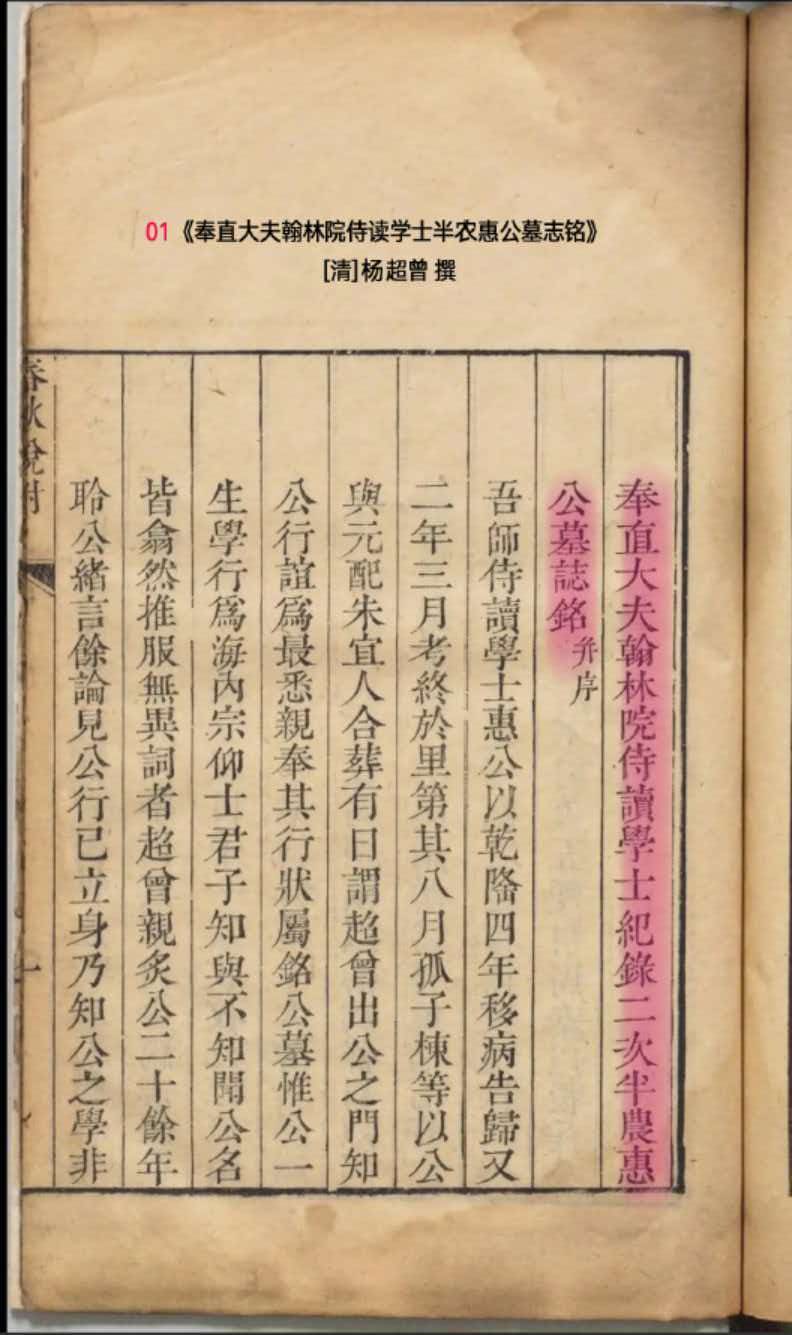 01《奉直大夫翰林院侍读学士半农惠公墓志铭》
[清]杨超曾 撰
奉直大夫翰林院侍讀學士紀錄二次半農惠
公墓誌銘并序
吾師侍讀學士惠公以乾隆四年移病告歸又
二年三月考終於里第其八月孤子棟等以公
與元配朱宜人合葬有日謂超曾出公之門知
公行誼爲最悉親奉其行狀屬銘公墓惟公一
生學行爲海內宗仰士君子知與不知聞公名
皆翕然推服無異詞者超曾親炙公二十餘年
聆公緒言餘論見公行已立身乃知公之學非
春秋說附
一